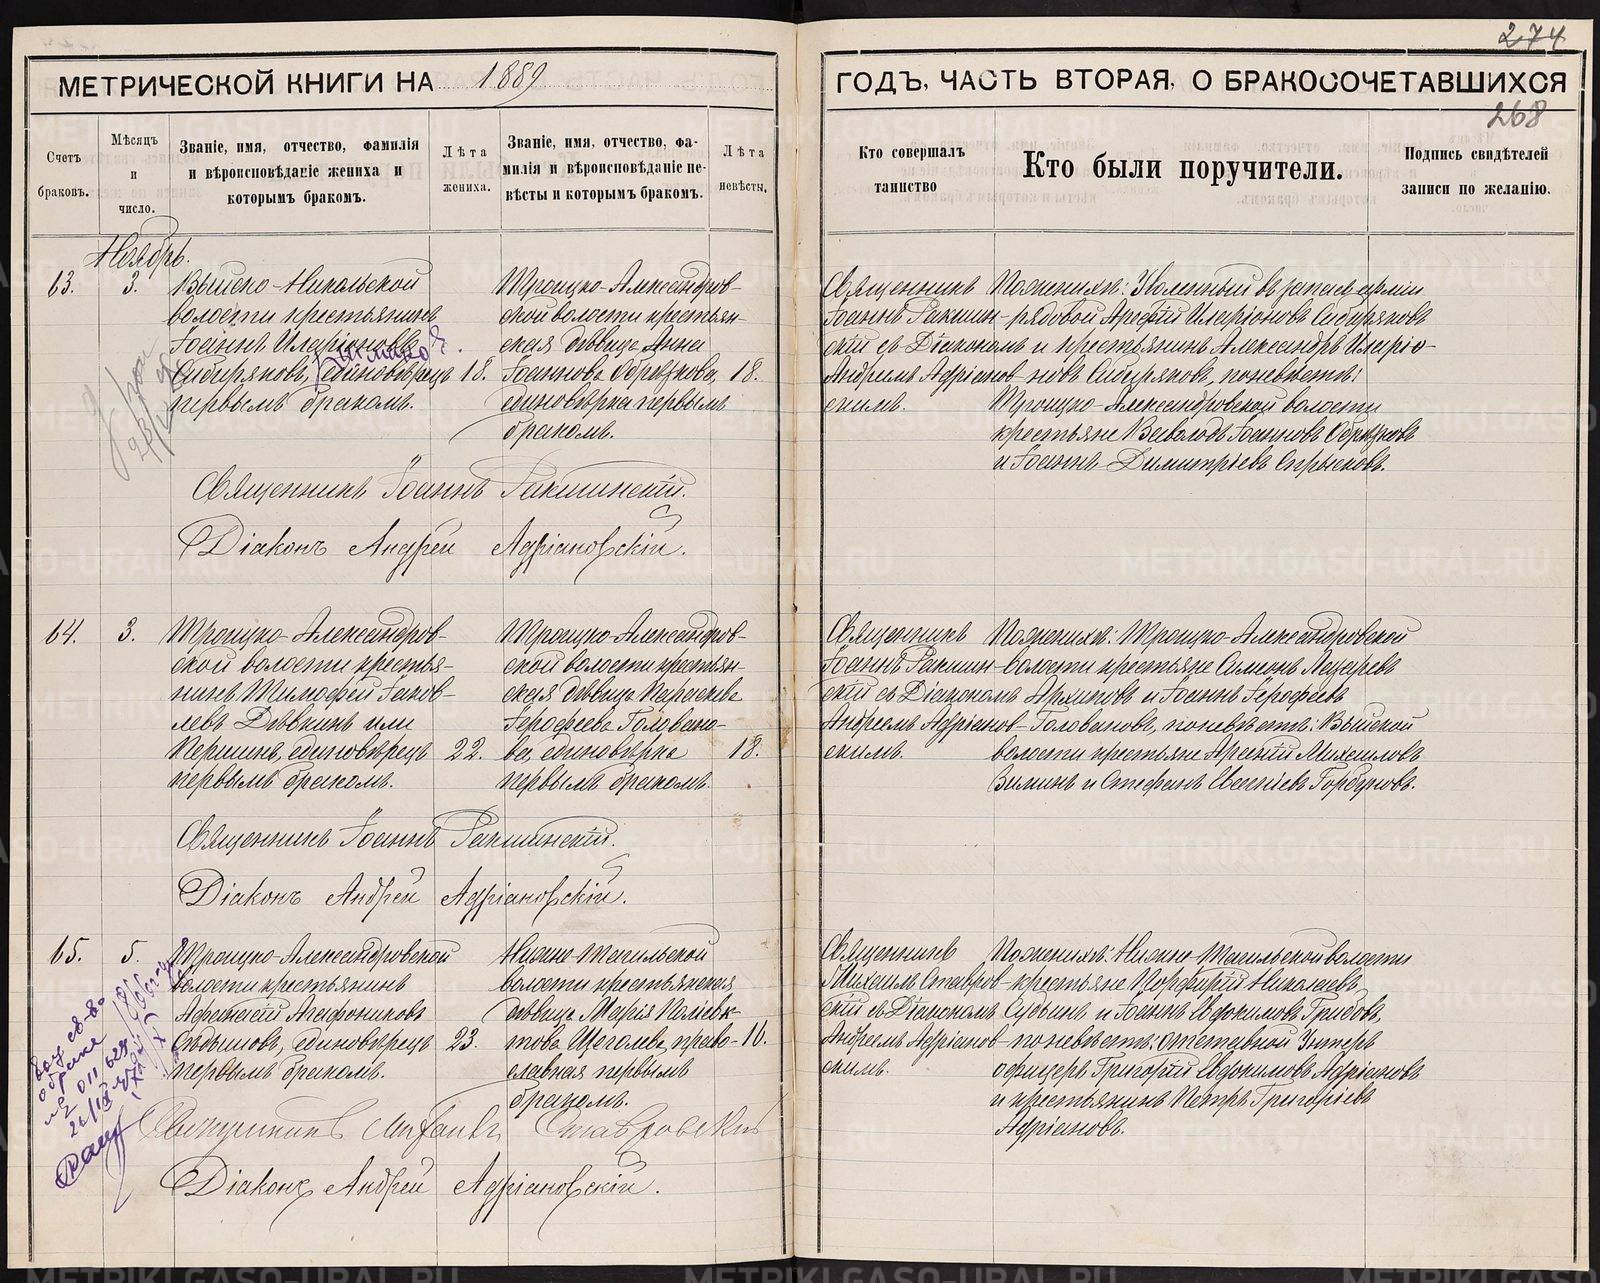 274
МЕТРИЧЕСКОЙ КНИГИ НА 1889
ГОДЪ, ЧАСТЬ ВТОРАЯ, О БРАКОСОЧЕТАВШИХСЯ
268
Счетъ
браковъ.
Мѣсяцъ
и
число.
Званіе, имя, отчество, фамилія
и вѣроисповѣданіе жениха и
которымъ бракомъ.
Лѣта
жениха.
Званіе, имя, отчество, фа-
милія и вѣроисповѣданіе не-
вѣсты и которымъ бракомъ.
Лѣта
невѣсты.
Кто совершалъ
таинство
Кто были поручители.
Подпись свидѣтелей
записи по желанію.
Ноябрь.
63.
3.
Выйско-Никольской
волости крестьянинъ
Іоаннъ Иларіоновъ
Сибиряковъ, единовѣрецъ
первымъ бракомъ.
18.
Троицко-Александров-
ской волости крестьян-
ская дѣвица Анна
Іоаннова Образкова,
единовѣрка первымъ
бракомъ.
18.
Священникъ
Іоаннъ Ракшин-
скій съ Діакономъ
Андреемъ Адріанов-
скимъ.
По женихѣ: Уволенный въ запасъ арміи
рядовой Арсеній Иларіоновъ Сибиряковъ
и крестьянинъ Александръ Иларіо-
новъ Сибиряковъ, по невѣстѣ:
Троицко-Александровской волости
крестьяне Всеволодъ Іоанновъ Образковъ
и Іоаннъ Димитріевъ
Священникъ Іоаннъ Ракшинскій.
Діаконъ Андрей Адріановскій.
64.
3.
Троицко-Александров-
ской волости крестья-
нинъ Тимофей Іаков-
левъ Дѣвкинъ или
Першинъ, единовѣрецъ
первымъ бракомъ.
22.
Троицко-Александров-
ской волости крестьян-
ская дѣвица Параскева
Іерофеева Голована-
ва, единовѣрка
первымъ бракомъ.
18.
Священникъ
Іоаннъ Ракшин-
скій съ Діакономъ
Андреемъ Адріанов-
скимъ.
По женихѣ: Троицко-Александровской
волости крестьяне Симонъ Лазаревъ
Архиповъ и Іоаннъ Іерофеевъ
Головановъ, по невѣстѣ: Выйской
волости крестьяне Арсеній Михаиловъ
Зиминъ и Стефанъ Евсевіевъ Горбуновъ.
Священникъ Іоаннъ Ракшинскій.
Діаконъ Андрей Адріановскій.
65.
5.
Троицко-Александровской
волости крестьянинъ
Афанасій Агафониковъ
Сѣдышовъ, единовѣрецъ
первымъ бракомъ.
23.
Нижне-Тагильской
волости крестьянская
дѣвица Марія Поліевк-
това Щеголева, право-
славная первымъ
бракомъ.
16.
Священникъ
Михаилъ Ставров-
скій съ Діакономъ
Андреемъ Адріанов-
скимъ.
По женихѣ: Нижне-Тагильской волости
крестьяне Порфирій Николаевъ
Судьинъ и Іоаннъ Евдокимовъ Грибовъ,
по невѣстѣ: отставной Унтеръ
офицеръ Григорій Евдокимовъ Адріановъ
и крестьянинъ Петръ Григоріевъ
Адріановъ.
Священникъ Михаилъ Ставровскій
Діаконъ Андрей Адріановскій.
METRIKI.GASO-URAL.RU